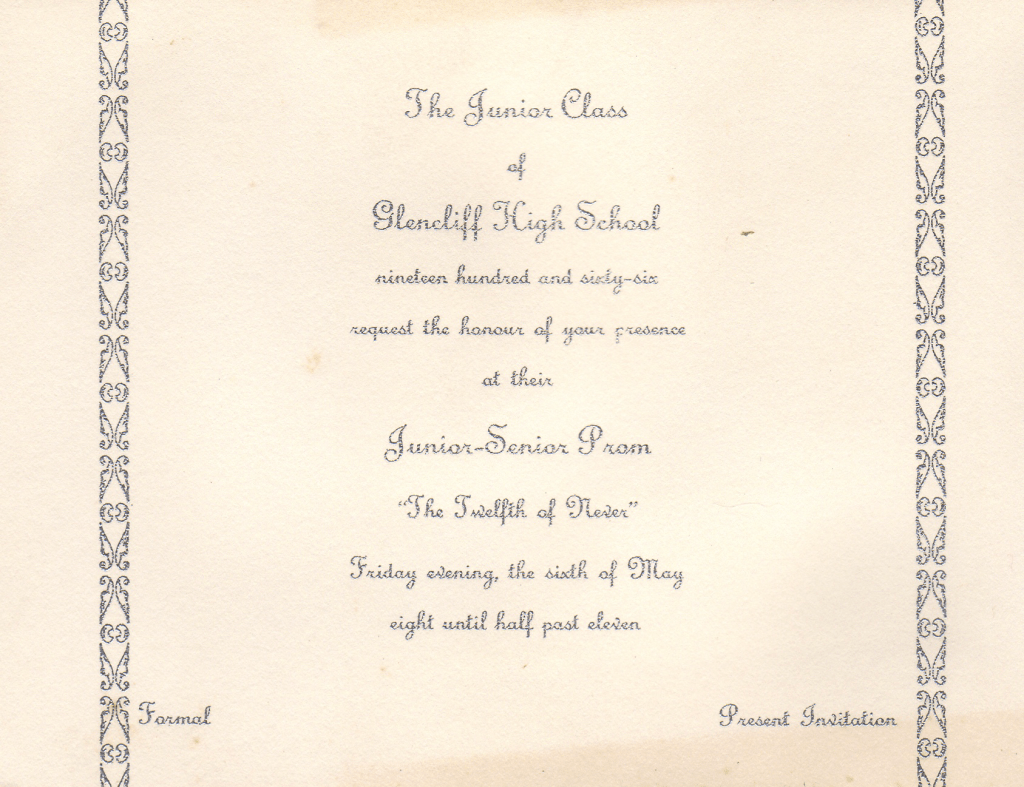 The Junior Class
of
Glencliff High School
nineteen hundred and sixty-six
request the honour of your presence
at their
Junior-Senior Prom
"The Twelfth of Never"
Friday evening, the sixth of May
eight until half past eleven
Formal
Present Invitation